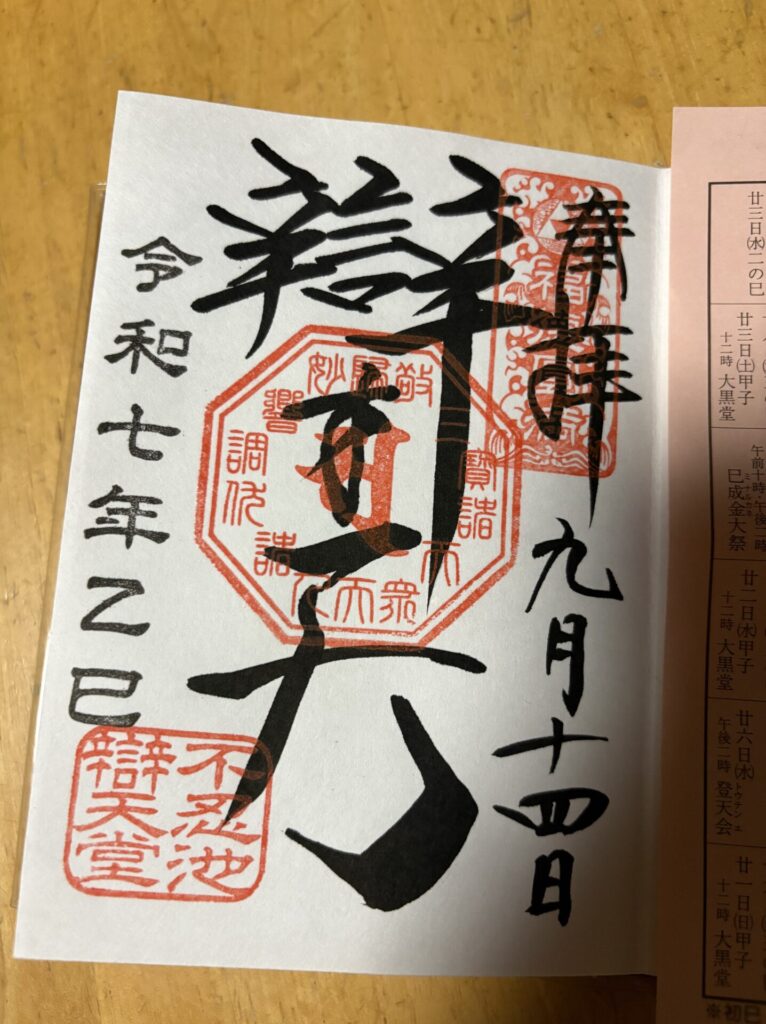 奉拝
九月十四日
辯才天
令和七年乙巳
不忍池
辯天堂
廿三日㈬二の巳
廿三日㈯甲子
十二時 大黒堂
午前十時・午後二時
巳成金大祭
廿二日㈬甲子
十二時 大黒堂
廿六日㈬
午後二時 登天会
廿一日㈰甲子
十二時 大黒堂
※初巳